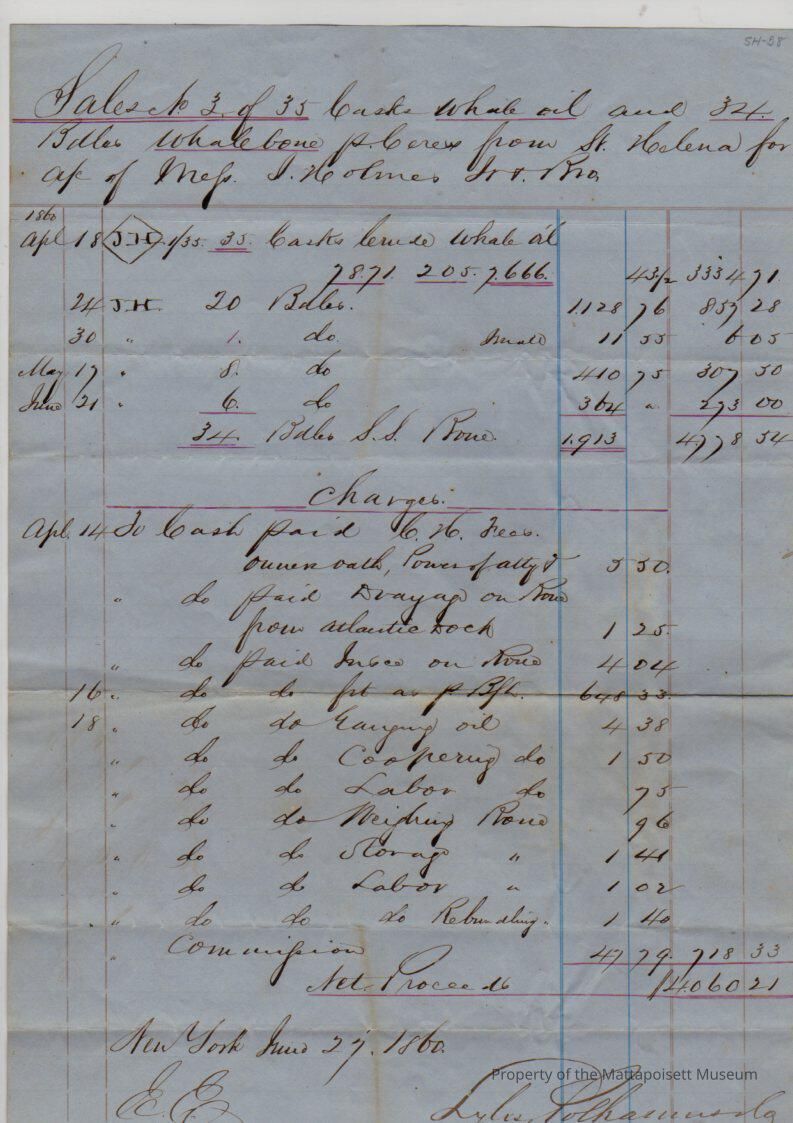 SH-58
Sales No. 3 of 35 Casks Whale oil and 34
Bdles Whalebone p. Ceres from St. Helena for
a/c of Mess. J. Holmes Jr. & Bro
1860
Apl 18 J.H. 1/35. 35 Casks Crude Whale oil
7871. 205. 7666. 43½ 3334 71.
24 J.H. 20 Bdles. 1128 76 857 28
30 " 1. do. Small 11 55 6 05
May 17 " 8. do 410 75 307 50
June 21 " 6. do 364 " 273 00
34 Bdles S.S. Bone. 1.913 4778 54
Charges.
Apl. 14 To Cash paid C. H. Fees.
owners oath, Power of atty & 5 50.
" do paid Drayage on Bone
from Atlantic Dock 1 25.
" do paid Insce on Bone 4 04
16 " do do frt as p. B/L. 648 33
18 " do do Gauging oil 4 38
" do do Coopering do 1 50
" do do Labor do 75
" do do Weighing Bone 96
" do do Storage " 1 41
" do do Labor " 1 02
" do do do Rebundling " 1 40
" Commission 47 79. 718 33
Net Proceeds $4060 21
New York June 27. 1860.
Property of the Mattapoisett Museum
E.E.
Lyles, Polhamus & Co